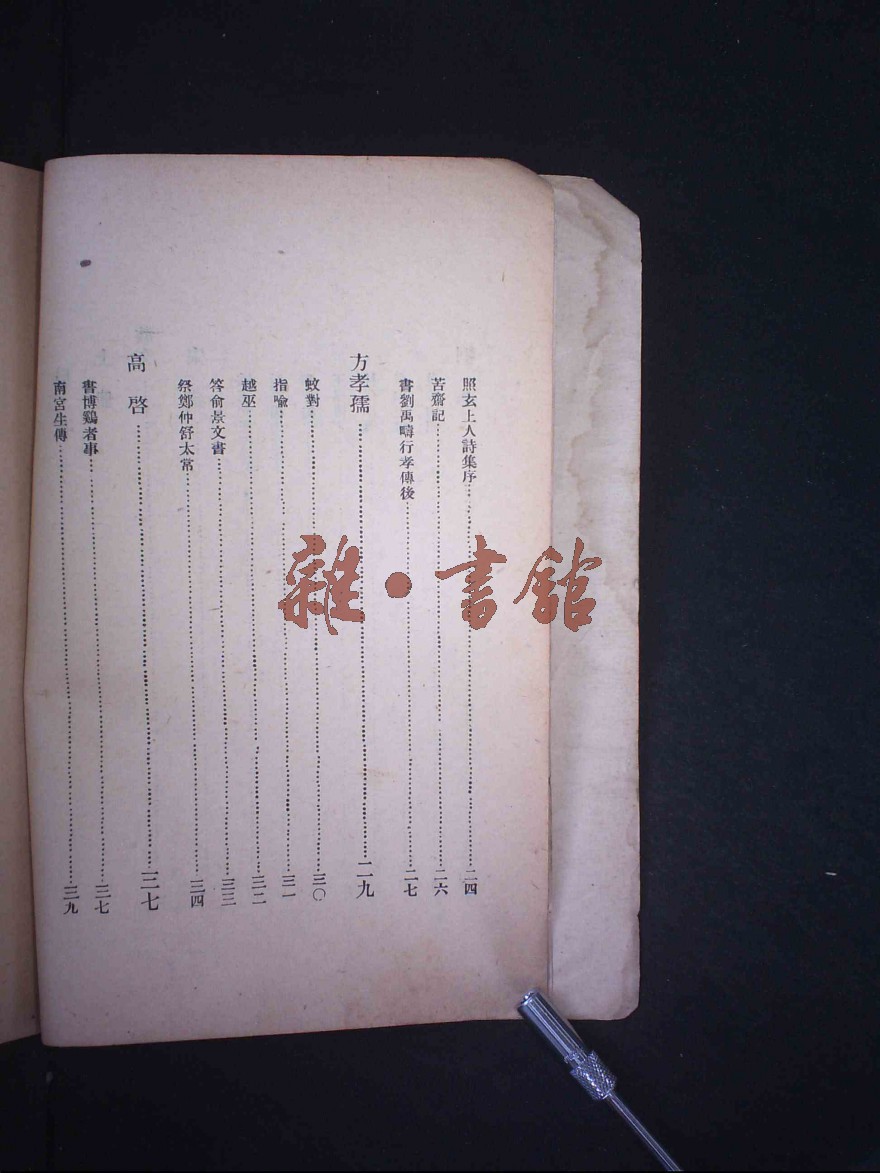 照玄上人詩集序……二四
苦齋記……二六
書劉禹疇行孝傳後……二七
方孝孺……二九
蚊對……三〇
指喻……三一
越巫……三二
答俞景文書……三三
祭鄭仲舒太常……三四
高啓……三七
書博鷄者事……三七
南宮生傳……三九
雜·書舘